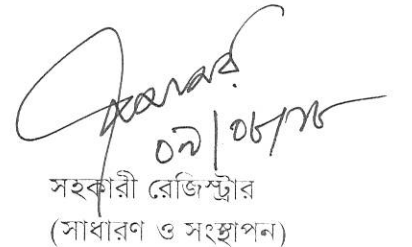 ০৯/০৮/১৮
সহকারী রেজিস্ট্রার
(সাধারণ ও সংস্থাপন)